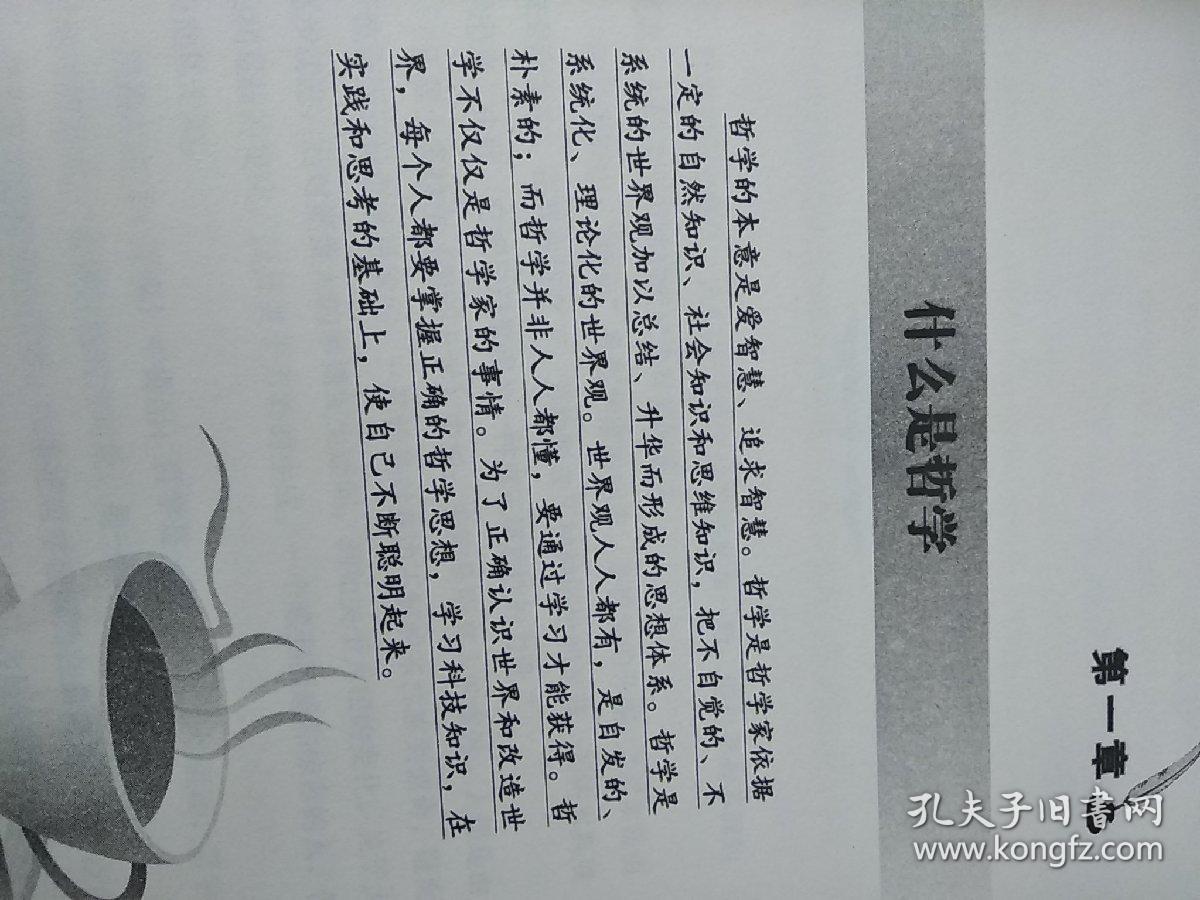 第一章
什么是哲学
哲学的本意是爱智慧、追求智慧。哲学是哲学家依据
一定的自然知识、社会知识和思维知识，把不自觉的、不
系统的世界观加以总结、升华而形成的思想体系。哲学是
系统化、理论化的世界观。世界观人人都有，是自发的、
朴素的；而哲学并非人人都懂，要通过学习才能获得。哲
学不仅仅是哲学家的事情。为了正确认识世界和改造世
界，每个人都要掌握正确的哲学思想，学习科技知识，在
实践和思考的基础上，使自己不断聪明起来。
孔夫子旧書网
www.kongfz.com